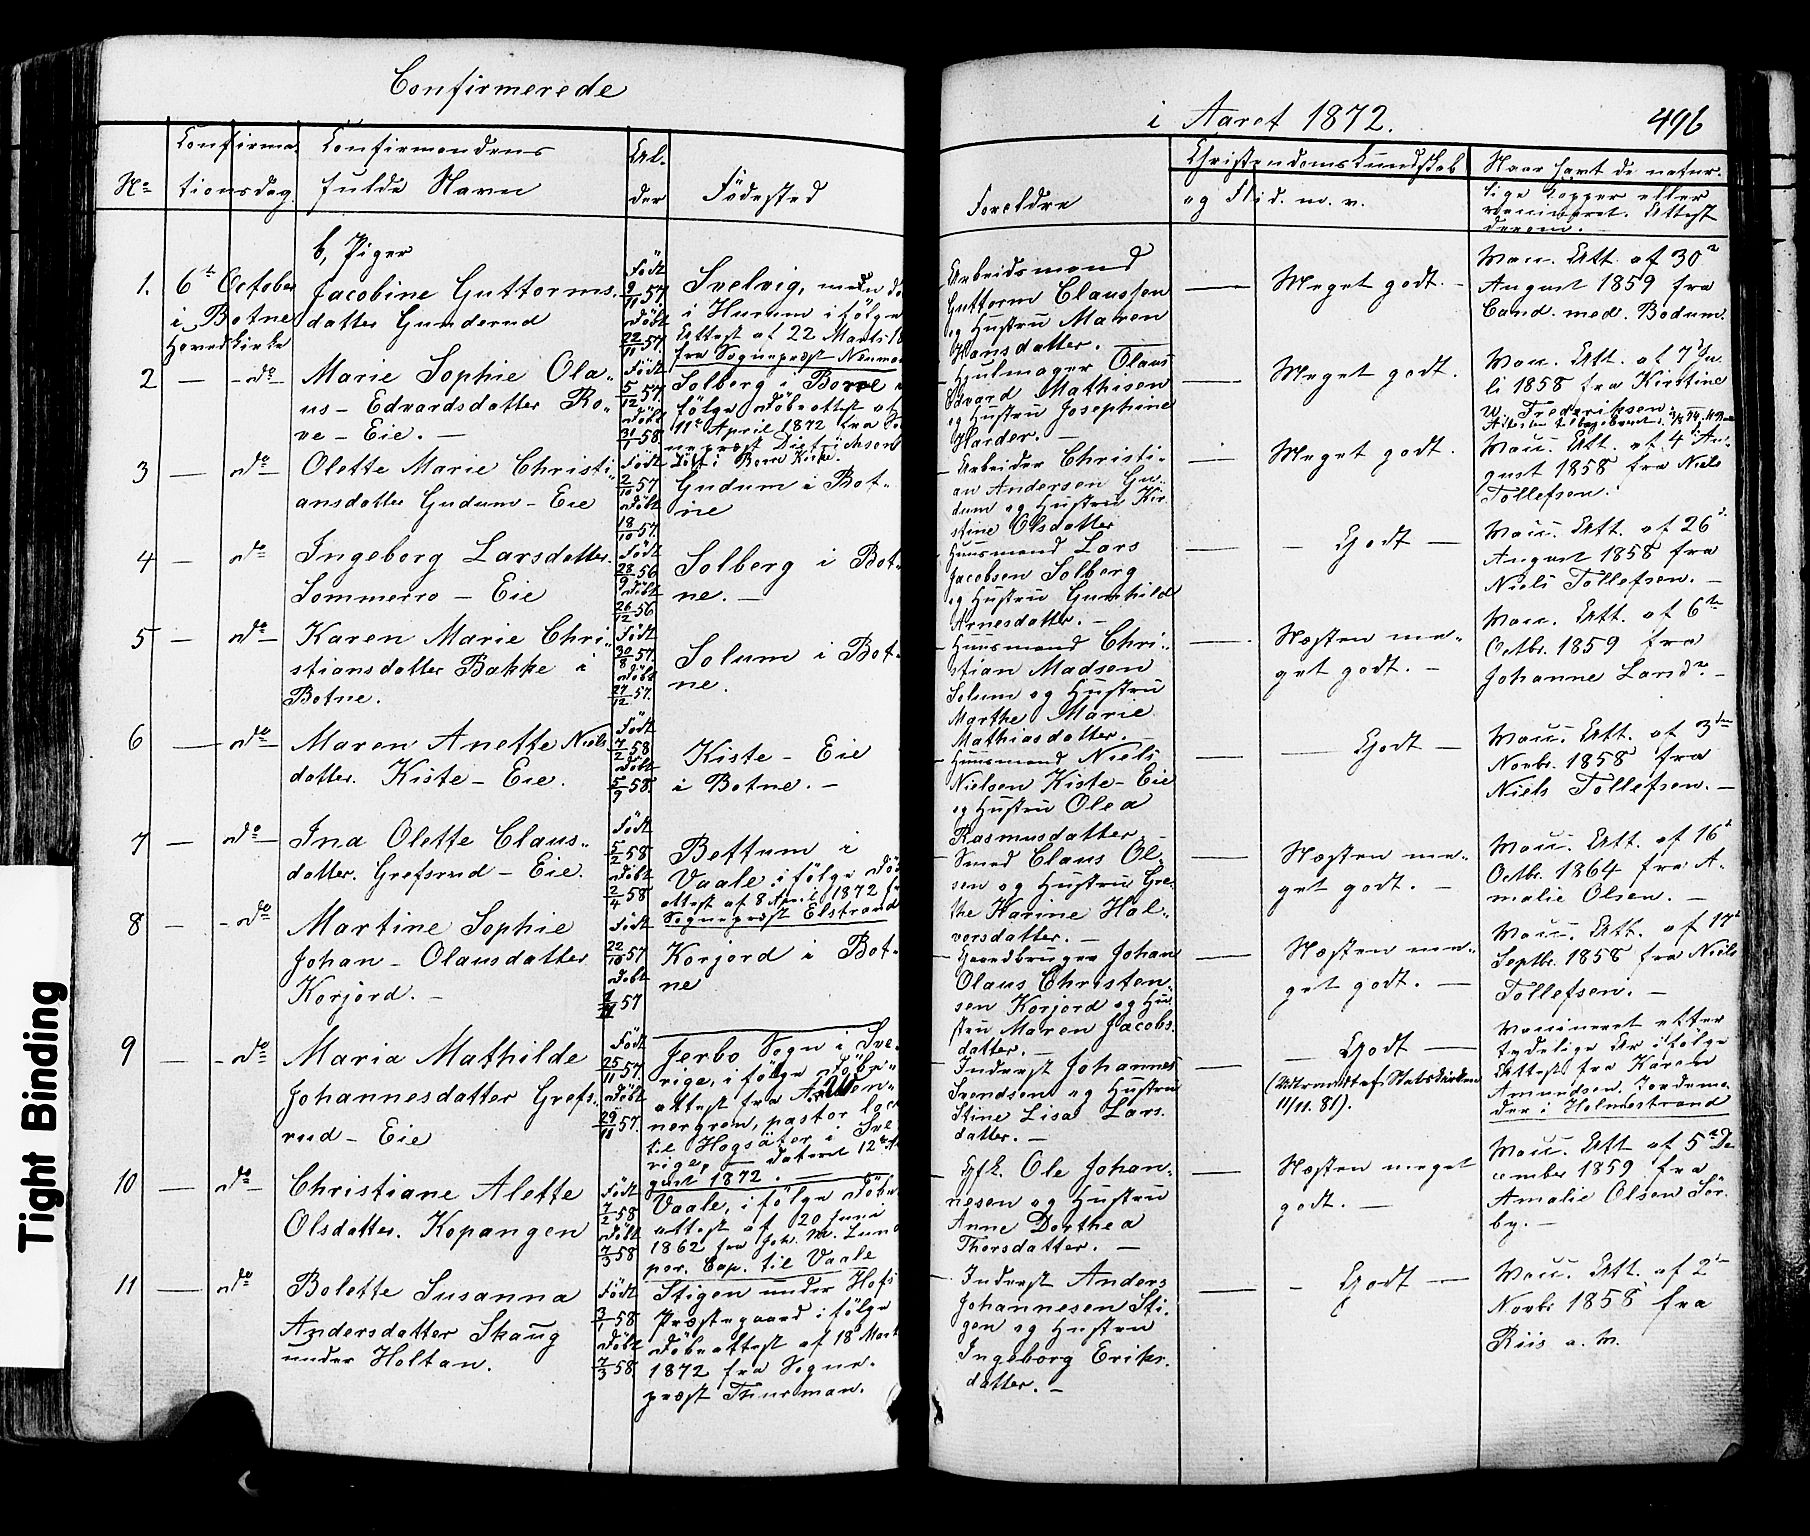 Confirmerede
i Aaret 1872.
496
No
Confirma-
tionsdag.
Confirmandens
fulde Navn
Al-
der
Fødested
Foreldre
Christendomskundskab
og Flid. m. v.
Naar havt de natur-
lige Kopper eller
vaccineret. Attest
derom.
b, Piger
1.
6te October
i Botne
Hovedkirke
Jacobine Guttorms-
datter Gunderud
Født
9/11 57.
Døbt
22/11 57.
Svelvig, men dø
i Hurum ifølge
Attest af 22 Marts 18
fra Sognepræst Neuman
Arbeidsmand
Guttorm Claussen
og Hustru Maren
Hansdatter. —
Meget godt. -
Vacc. Att. af 30te
August 1859 fra
Cand. med. Bodum.
2
— - do -
Marie Sophie Ola-
us - Edvardsdatter Ro-
ve - Eie. —
Født
5/12 57.
Døbt
31/1 58.
Solberg i Borre i
følge Døbeattest af
11te April 1872 fra So
nepræst Dietrichsen
Døbt i Borre Kirke.
Hjulmager Olaus
Edvard Mathisen
og Hustru Josephine
Harder. —
Meget godt.
Vacc. Att. af 7 Ju-
li 1858 fra Kirstine
W. Frederiksen.
3
— do -
Olette Marie Christi-
ansdatter Gudum - Eie
Født
2/10 57
Døbt
18/10 57.
Gudum i Bot-
ne
Arbeider Christi-
an Andersen Gu-
dum og Hustru Kir-
stine Olsdatter
Meget godt.
Vacc. Att. af 4 Au-
gust 1858 fra Niels
Tollefsen.
4
— do
Ingeborg Larsdatter.
Sommerro - Eie
Født
28/9 56
Døbt
26/12 56
Solberg i Bot-
ne. —
Huusmand Lars
Jacobsen Solberg
og Hustru Gunhild
Arnesdatter. —
- Godt —
Vacc. Att. af 26
August 1858 fra
Niels Tollefsen. —
5
— do —
Karen Marie Chri-
stiansdatter Bakke i
Botne.
Født
30/8 57
Døbt
27/12 57.
Solum i Bot-
ne.
Huusmand Chri-
stian Madsen
Solum og Hustru
Marthe Marie
Mathiasdatter. —
Næsten me-
get godt. —
Vacc. Att. af 6te
Octbr. 1859 fra
Johanne Land
6
— do —
Maren Anette Niels
datter. Kiste - Eie.
Født
7/2 58
Døbt
5/9 58.
Kiste - Eie
i Botne. —
Huusmand Niels
Nielsen Kiste - Eie
og Hustru Olea
Rasmusdatter. —
— Godt —
Vacc. Att. af 3die
Novbr. 1858 fra
Niels Tollefsen. —
7
— do —
Ina Olette Claus-
datter. Grefsrud - Eie.
Født
5/2 58
Døbt
2/4 58
Bettum i
Vaale. ifølge Døb
attest af 8 April 1872 fr
Sognepræst Elstrand
Smed Claus Ol-
sen og Hustru Gre-
the Karine Hal-
vorsdatter. —
Næsten me-
get godt. —
Vacc. Att. af 16
Octbr. 1864 fra A-
malie Olsen. —
8
— - do
Martine Sophie
Johan - Olausdatter
Korjord. —
Født
22/10 57
Døbt
1/11 57
Korjord i Bot-
ne
Gaardbruger Johan
Olaus Christen-
sen Korjord og Hu-
stru Maren Jacobs-
datter. —
Næsten me-
get godt. —
Vacc. Att. af 17
Septbr. 1858 fra Niels
Tollefsen. —
9
— - do
Maria Mathilde
Johannesdatter Grefs-
rud - Eie
Født
25/11 57.
Døbt
29/11 57.
Jerbo Sogn i Sve-
rige, ifølge Døbe-
attest fra
nergren, pastor loci
til Hogsäter i Sve-
rige, — dateret 12te A
gust 1872. —
Inderst Johannes
Svendsen og Hustru
Stine Lisa Lars-
datter. —
— Godt —
(Udtraadt af Statskirken
11/11. 81).
Vaccineret efter
tydelige Ar ifølge
Attest fra Karen
Amundsen Jordemo-
der i Holmestrand
10
— do —
Christiane Alette
Olsdatter. Kopangen
Født
7/2 58
Døbt
7/3 58
Vaale, ifølge Døbe-
attest af 20 Juni
1862 fra Joh. M. Lund
per. Cap. til Vaale
Gfk. Ole Johan-
nesen og Hustru
Anne Dorthea
Thorsdatter. —
Næsten meget
godt. —
Vacc. Att af 5te De-
cember 1859 fra
Amalie Olsen Sør-
by. —
11
— do
Bolette Susanna
Andersdatter Skaug
under Holtan.
Født
3/1 58
Døbt
7/3 58
Stigen under Hofs
Præstegaard ifølge
Døbeattest af 18 Marts
1872 fra Sogne-
præst Thurman.
Inderst Anders
Johannesen Sti-
gen og Hustru
Ingeborg Eriks-
datter. —
- Godt —
Vacc. Att. af 2
Novbr 1858 fra
Riis a. M.
Tight Binding